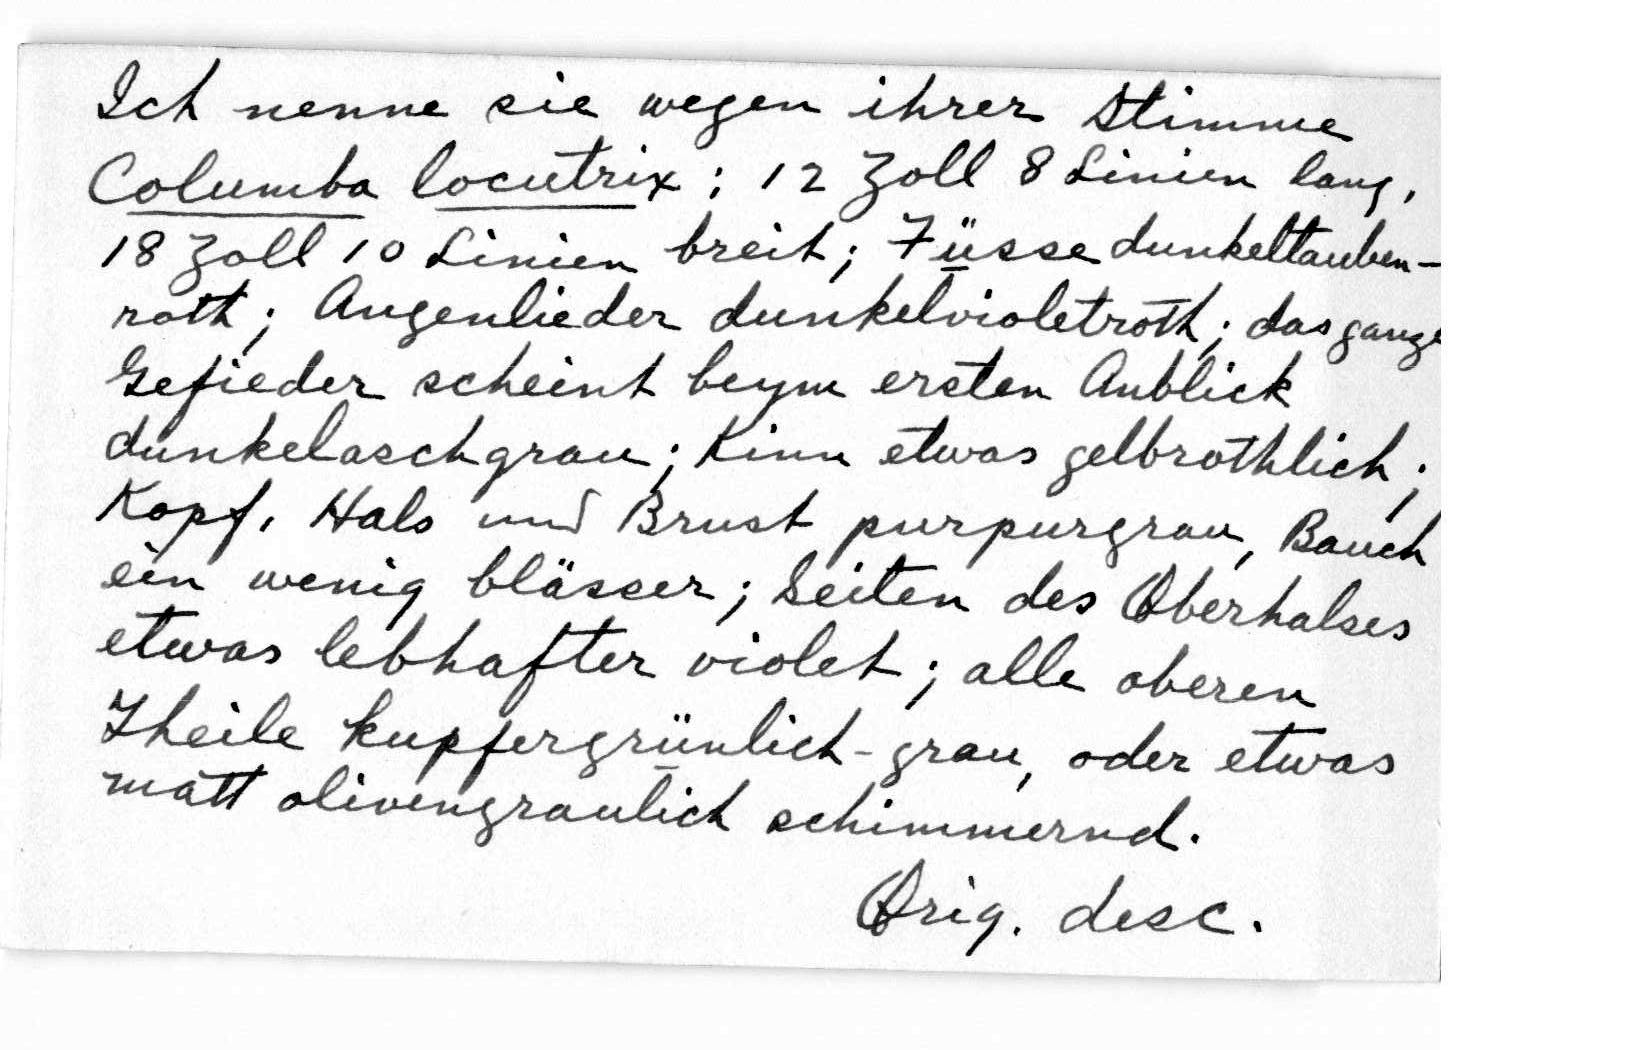 Ich nenne sie wegen ihrer Stimme
Columba locutrix; 12 Zoll 8 Linien lang,
18 Zoll 10 Linien breit; Füsse dunkeltauben-
roth; Augenlieder dunkelvioletroth; das ganze
Gefieder scheint beym ersten Anblick
dunkelaschgrau; Kinn etwas gelbrothlich;
Kopf, Hals und Brust purpurgrau, Bauch
ein wenig blässer; Seiten des Oberhalses
etwas lebhafter violet; alle oberen
Theile kupfergrünlich-grau, oder etwas
matt olivengraulich schimmernd.
Orig. desc.